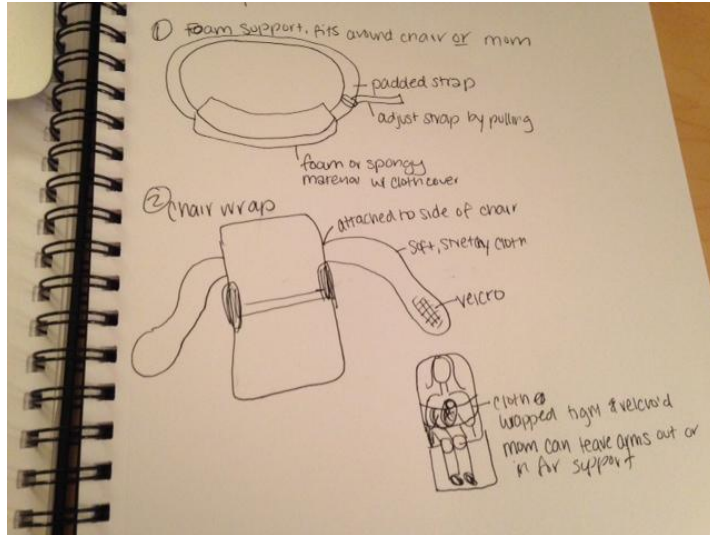 ① Foam support, fits around chair or mom
padded strap
adjust strap by pulling
foam or spongy
material w/ cloth cover
② Chair wrap
attached to side of chair
soft, stretchy cloth
velcro
cloth
wrapped tight & velcro'd
mom can leave arms out or
in for support